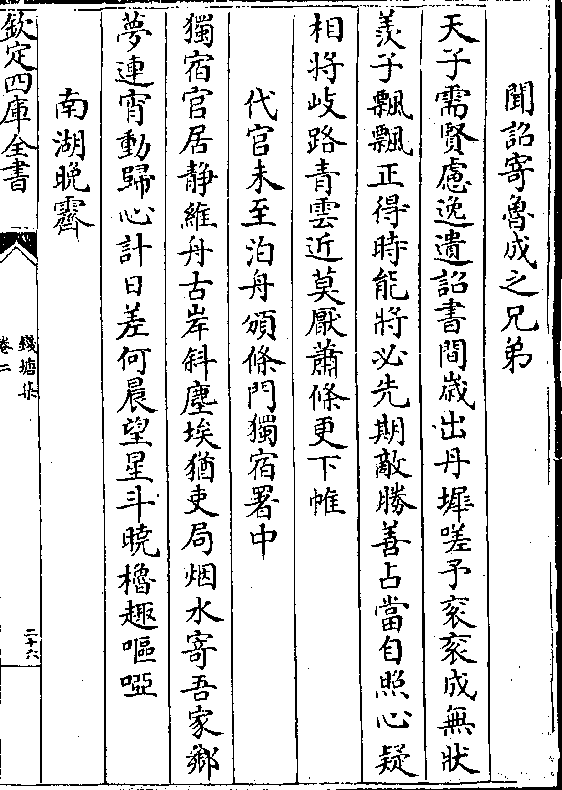 聞詔寄魯成之兄弟
天子需賢慮逸遺詔書間歲出丹墀嗟予衮衮成無狀
羨子飄飄正得時能將必先期敵勝善占當自照心疑
相將岐路青雲近莫厭蕭條更下帷
代官未至泊舟頒條門獨宿署中
獨宿官居静維舟古岸斜塵埃猶吏局烟水寄吾家鄉
夢連宵動歸心計日差何晨望星斗曉櫓趣嘔啞
南湖晚霽
欽定四庫全書
錢塘集
卷二
二十六